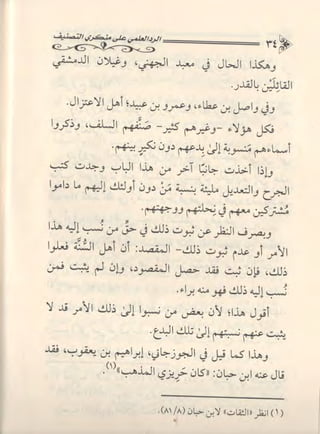 الرد العلمي على منكري التصنيف
٣٤
وهكذا الحال في معبد الجهني، وغيلان الدمشقي
القائلَيْنِ بالقدر.
وفي واصل بن عطاء، وعمرو بن عبيد؛ أهل الاعتزال.
فكل هؤلاء -وغيرهم كثير- صنَّفهم السلف، وذكروا
أسماءهم منسوبة إلى بدعهم دون نكير بينهم.
وإذا أخذت جانبًا آخر من هذا الباب وجدت كتب
الجرح والتعديل مليئة بنسبة من دون أولئك إليهم أو ما
مُشتركين معهم في نحلتهم ووجهتهم.
وبصرف النظر عن ثبوت ذلك في حقِّ من نُسب إليه هذا
الأمر أو عدم ثبوت ذلك- المقصد: أن أهل السُّنَّة فعلوا
ذلك، فإن ثبت فقد حصل المقصود، وإن لم يثبت فمن
نُسب إليه ذلك فهو منه براء.
أقول هذا؛ لأن بعض من نسبوا إلى ذلك الأمر قد لا
يثبت عنهم نسبتهم إلى تلك البدع.
وهذا كما قيل في الجوزجاني، إبراهيم بن يعقوب، فقد
قال عنه ابن حبان: «كان حَرِيزي المذهب»(١).
(١) انظر «الثقات» لابن حبان (٨/ ٨١).